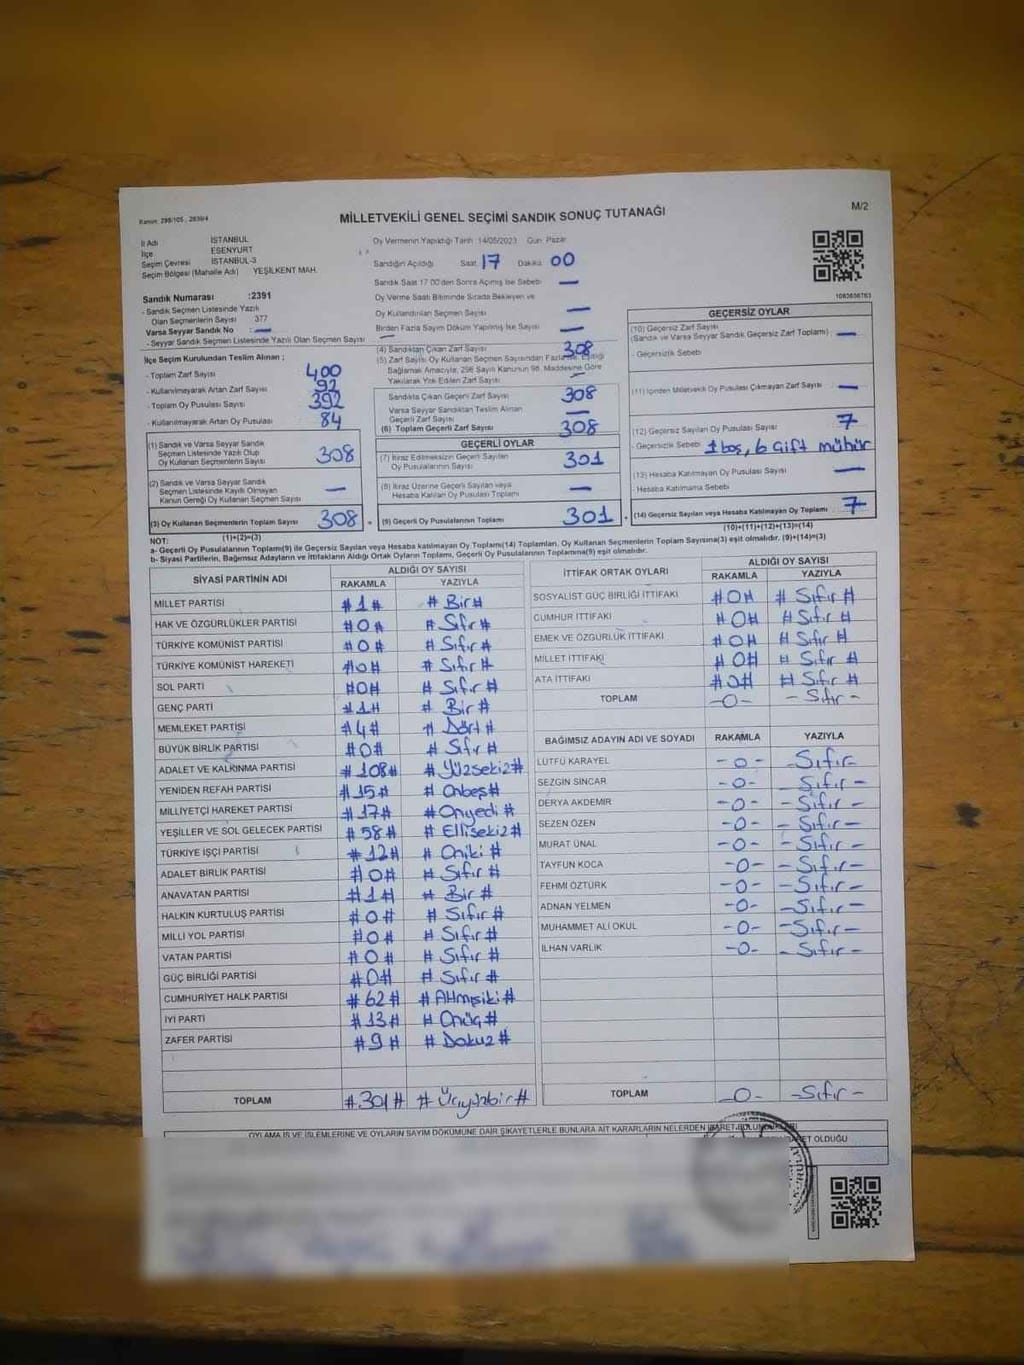 Kanun: 298/105 , 2839/4
MİLLETVEKİLİ GENEL SEÇİMİ SANDIK SONUÇ TUTANAĞI
M/2
İl Adı İSTANBUL
İlçe ESENYURT
Seçim Çevresi İSTANBUL-3
Seçim Bölgesi (Mahalle Adı) YEŞİLKENT MAH.
Oy Vermenin Yapıldığı Tarih 14/05/2023 Gün Pazar
Sandığın Açıldığı Saat 17 Dakika 00
Sandık Saat 17.00'den Sonra Açılmış İse Sebebi —
Oy Verme Saati Bitiminde Sırada Bekleyen ve
Oy Kullandırılan Seçmen Sayısı —
Birden Fazla Sayım Döküm Yapılmış İse Sayısı —
Sandık Numarası :2391
- Sandık Seçmen Listesinde Yazılı
Olan Seçmenlerin Sayısı 377
Varsa Seyyar Sandık No : —
- Seyyar Sandık Listesinde Yazılı Olan Seçmen Sayısı —
İlçe Seçim Kurulundan Teslim Alınan ;
- Toplam Zarf Sayısı 400
- Kullanılmayarak Artan Zarf Sayısı 92
- Toplam Oy Pusulası Sayısı 392
- Kullanılmayarak Artan Oy Pusulası 84
(1) Sandık ve Varsa Seyyar Sandık
Seçmen Listesinde Yazılı Olup
Oy Kullanan Seçmenlerin Sayısı 308
(2) Sandık ve Varsa Seyyar Sandık
Seçmen Listesinde Kayıtlı Olmayan
Kanun Gereği Oy Kullanan Seçmen Sayısı —
(3) Oy Kullanan Seçmenlerin Toplam Sayısı 308
(1)+(2)=(3)
(4) Sandıktan Çıkan Zarf Sayısı 308
(5) Zarf Sayısı Oy Kullanan Seçmen Sayısından Fazla ise, Eşitliği
Sağlamak Amacıyla, 298 Sayılı Kanunun 98. Maddesine Göre
Yakılarak Yok Edilen Zarf Sayısı —
Sandıkta Çıkan Geçerli Zarf Sayısı 308
Varsa Seyyar Sandıktan Teslim Alınan
Geçerli Zarf Sayısı —
(6) Toplam Geçerli Zarf Sayısı 308
GEÇERLİ OYLAR
(7) İtiraz Edilmeksizin Geçerli Sayılan
Oy Pusulalarının Sayısı 301
(8) İtiraz Üzerine Geçerli Sayılan veya
Hesaba Katılan Oy Pusulası Toplamı —
(9) Geçerli Oy Pusulalarının Toplamı 301
GEÇERSİZ OYLAR
(10) Geçersiz Zarf Sayısı
(Sandık ve Varsa Seyyar Sandık Geçersiz Zarf Toplamı) —
- Geçersizlik Sebebi
(11) İçinden Milletvekili Oy Pusulası Çıkmayan Zarf Sayısı —
(12) Geçersiz Sayılan Oy Pusulası Sayısı 7
- Geçersizlik Sebebi 1 boş, 6 Çift mühür
(13) Hesaba Katılmayan Oy Pusulası Sayısı —
- Hesaba Katılmama Sebebi
(14) Geçersiz Sayılan veya Hesaba Katılmayan Oy Toplamı 7
(10)+(11)+(12)+(13)=(14)
NOT:
a- Geçerli Oy Pusulalarının Toplamı(9) ile Geçersiz Sayılan veya Hesaba katılmayan Oy Toplamı(14) Toplamları, Oy Kullanan Seçmenlerin Toplam Sayısına(3) eşit olmalıdır. (9)+(14)=(3)
b- Siyasi Partilerin, Bağımsız Adayların ve İttifakların Aldığı Ortak Oyların Toplamı, Geçerli Oy Pusulalarının Toplamına(9) eşit olmalıdır.
SİYASİ PARTİNİN ADI ALDIĞI OY SAYISI
RAKAMLA YAZIYLA
MİLLET PARTİSİ #1# #Bir#
HAK VE ÖZGÜRLÜKLER PARTİSİ #0# #Sıfır#
TÜRKİYE KOMÜNİST PARTİSİ #0# #Sıfır#
TÜRKİYE KOMÜNİST HAREKETİ #0# #Sıfır#
SOL PARTİ #0# #Sıfır#
GENÇ PARTİ #1# #Bir#
MEMLEKET PARTİSİ #4# #Dört#
BÜYÜK BİRLİK PARTİSİ #0# #Sıfır#
ADALET VE KALKINMA PARTİSİ #108# #Yüzsekiz#
YENİDEN REFAH PARTİSİ #15# #Onbeş#
MİLLİYETÇİ HAREKET PARTİSİ #17# #Onyedi#
YEŞİLLER VE SOL GELECEK PARTİSİ #58# #Ellisekiz#
TÜRKİYE İŞÇİ PARTİSİ #12# #Oniki#
ADALET BİRLİK PARTİSİ #0# #Sıfır#
ANAVATAN PARTİSİ #1# #Bir#
HALKIN KURTULUŞ PARTİSİ #0# #Sıfır#
MİLLİ YOL PARTİSİ #0# #Sıfır#
VATAN PARTİSİ #0# #Sıfır#
GÜÇ BİRLİĞİ PARTİSİ #0# #Sıfır#
CUMHURİYET HALK PARTİSİ #62# #Altmışiki#
İYİ PARTİ #13# #Onüç#
ZAFER PARTİSİ #9# #Dokuz#
TOPLAM #301# #Üçyüzbir#
İTTİFAK ORTAK OYLARI ALDIĞI OY SAYISI
RAKAMLA YAZIYLA
SOSYALİST GÜÇ BİRLİĞİ İTTİFAKI #0# #Sıfır#
CUMHUR İTTİFAKI #0# #Sıfır#
EMEK VE ÖZGÜRLÜK İTTİFAKI #0# #Sıfır#
MİLLET İTTİFAKI #0# #Sıfır#
ATA İTTİFAKI #0# #Sıfır#
TOPLAM -0- -Sıfır-
BAĞIMSIZ ADAYIN ADI VE SOYADI RAKAMLA YAZIYLA
LÜTFÜ KARAYEL -0- -Sıfır-
SEZGİN SİNCAR -0- -Sıfır-
DERYA AKDEMİR -0- -Sıfır-
SEZEN ÖZEN -0- -Sıfır-
MURAT ÜNAL -0- -Sıfır-
TAYFUN KOCA -0- -Sıfır-
FEHMİ ÖZTÜRK -0- -Sıfır-
ADNAN YELMEN -0- -Sıfır-
MUHAMMET ALİ OKUL -0- -Sıfır-
İLHAN VARLIK -0- -Sıfır-
TOPLAM -0- -Sıfır-
OYLAMA İŞ VE İŞLEMLERİNE VE OYLARIN SAYIM DÖKÜMÜNE DAİR ŞİKAYETLERLE BUNLARA AİT KARARLARIN NELERDEN İBARET BULUNDUĞU
OLDUĞU